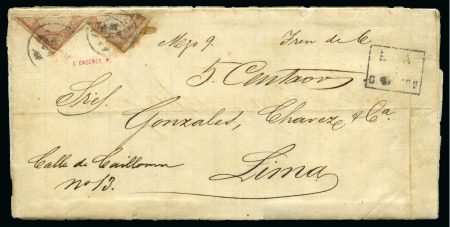 Mzo 9. Tren de C.
J. CACEROS. P.
5. Centavos
Sres.
Gonzales, Chavez & Ca.
Calle de Cailloma
No 13.
Lima